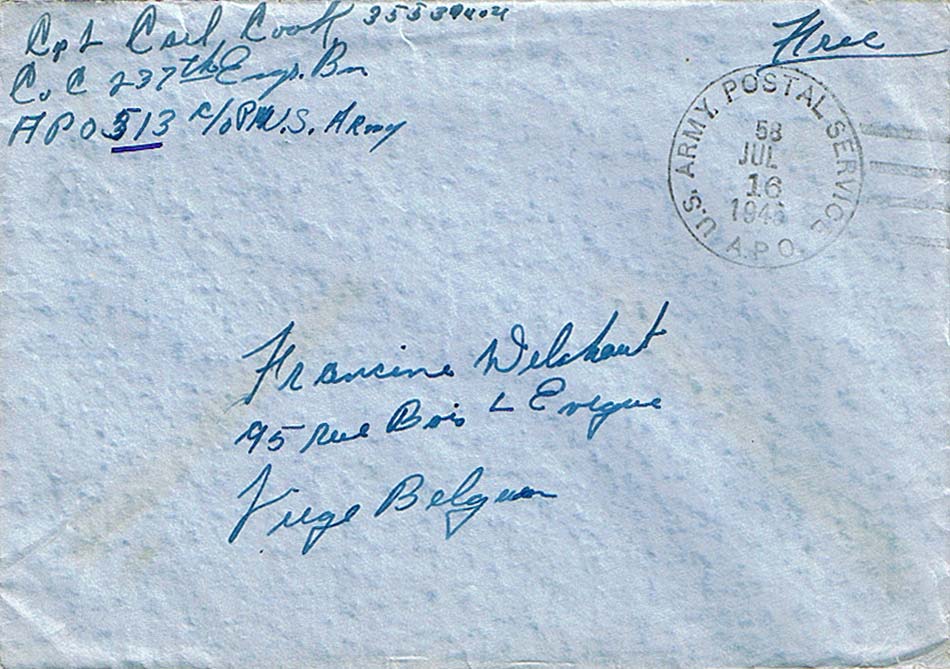 Cpl Carl Cook 35539404
Co C 237th Engr. Bn
APO 513 c/o PM U.S. Army
Free
U.S. ARMY. POSTAL SERVICE
58
JUL
16
1945
A.P.O.
Francine Welshaut
95 rue Bois L Eveque
Liege Belguen